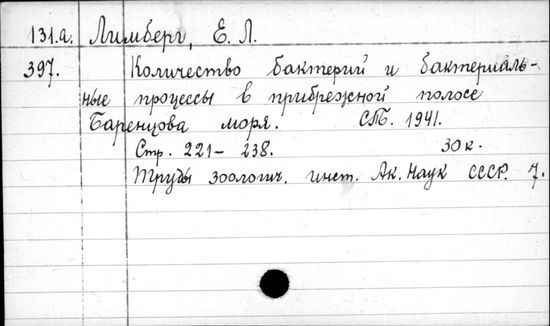 131.а. Лимберг, Е. Л.
397. Количество бактерий и бактериаль-
ные процессы в прибрежной полосе
Баренцова моря. СПб. 1941.
Стр. 221-238. 30 к.
Труды зоологич. инст. Ак. Наук СССР. 7.